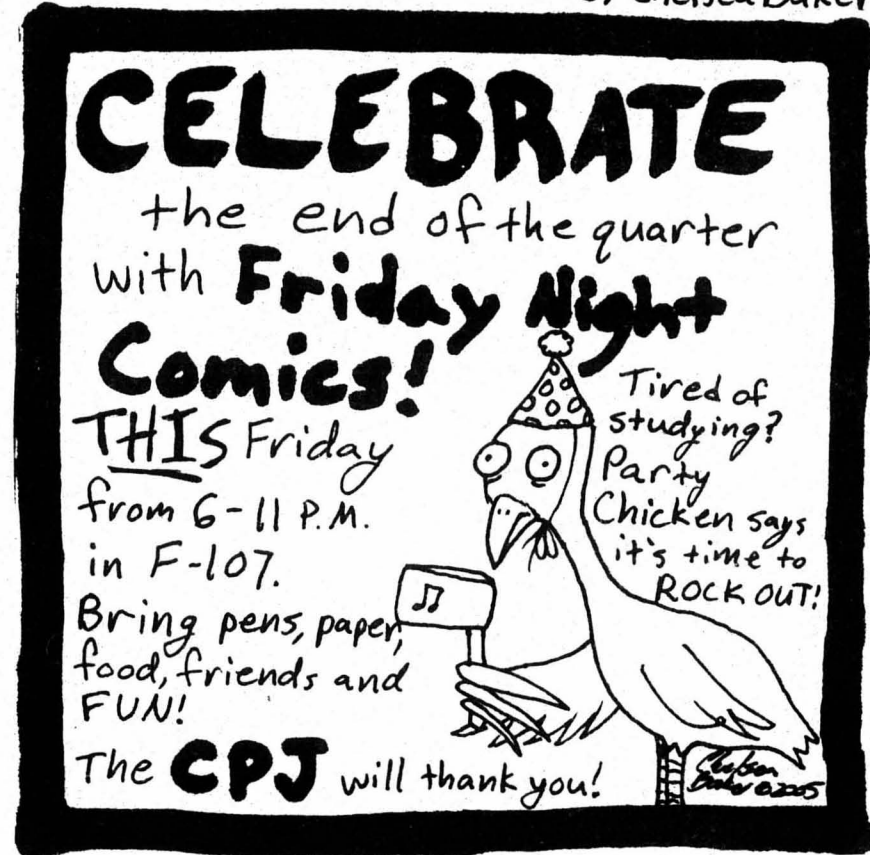 by Chelsea Baker
CELEBRATE
the end of the quarter
with Friday Night
Comics!
THIS Friday
from 6-11 P.M.
in F-107.
Bring pens, paper,
food, friends and
FUN!
The CPJ will thank you!
Tired of
studying?
Party
Chicken says
it's time to
ROCK OUT!
Chelsea
Baker ©2005